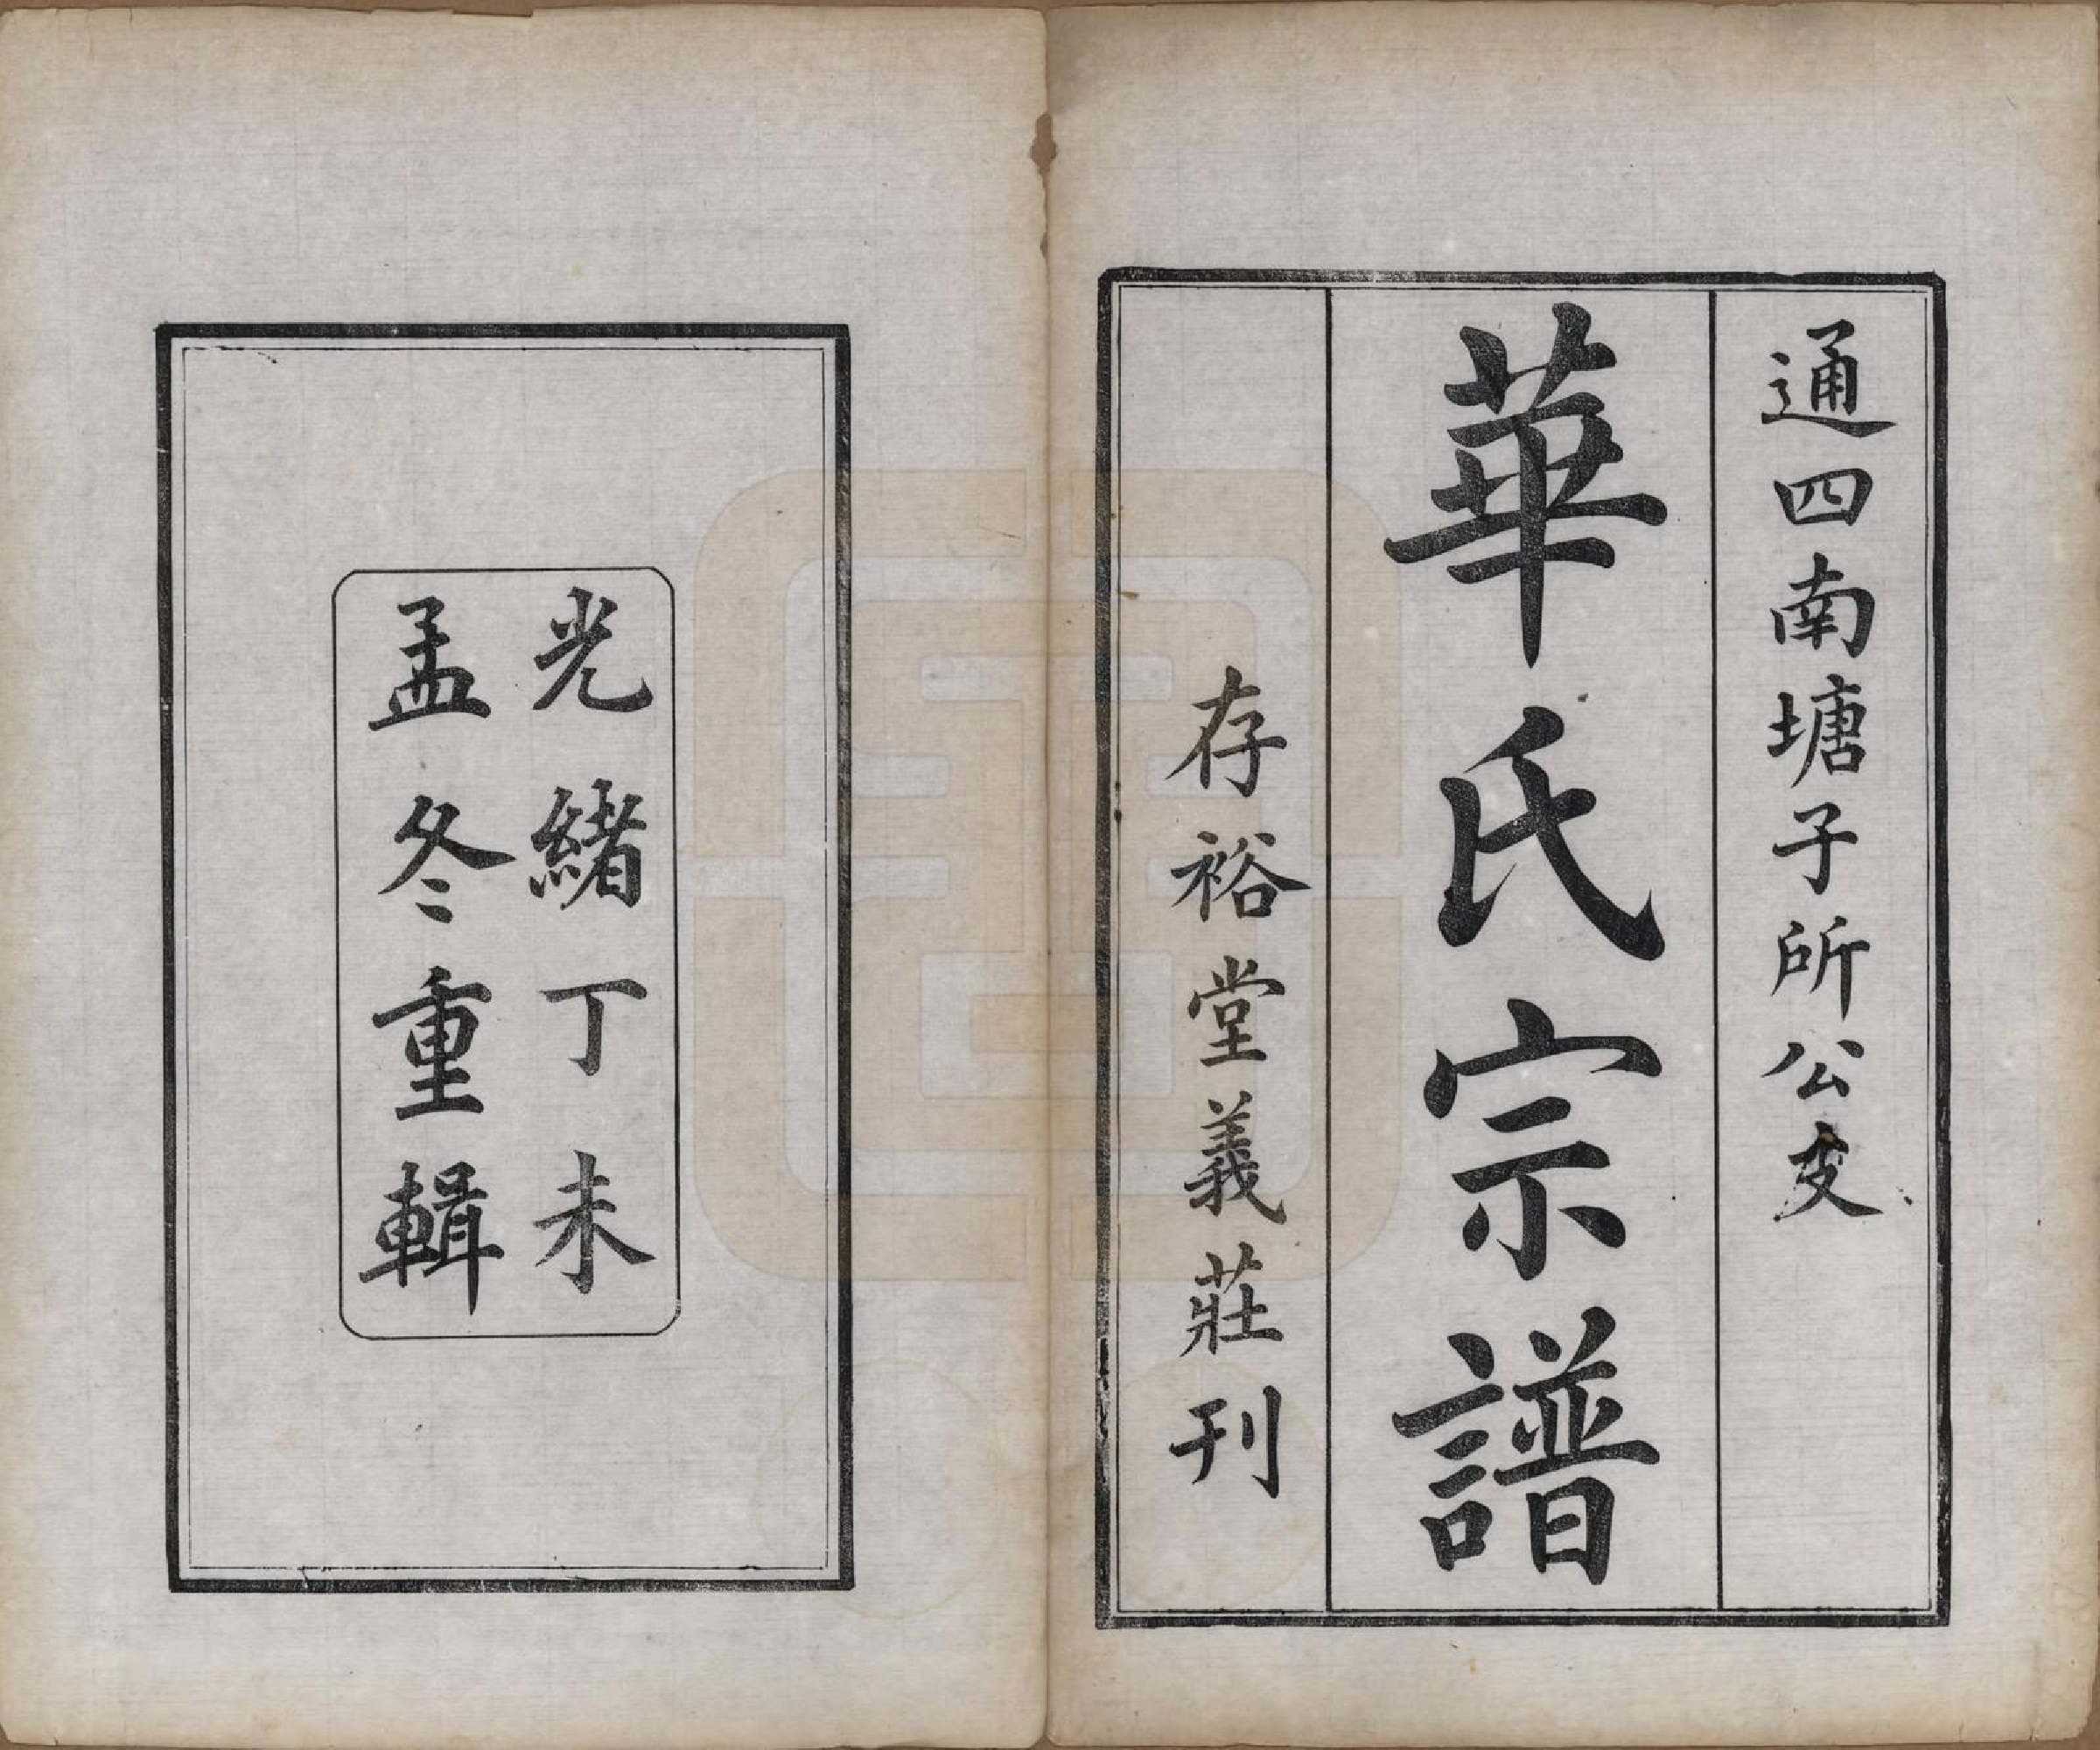 通四南塘子所公支
華氏宗譜
存裕堂義莊刊
光緒丁未
孟冬重輯